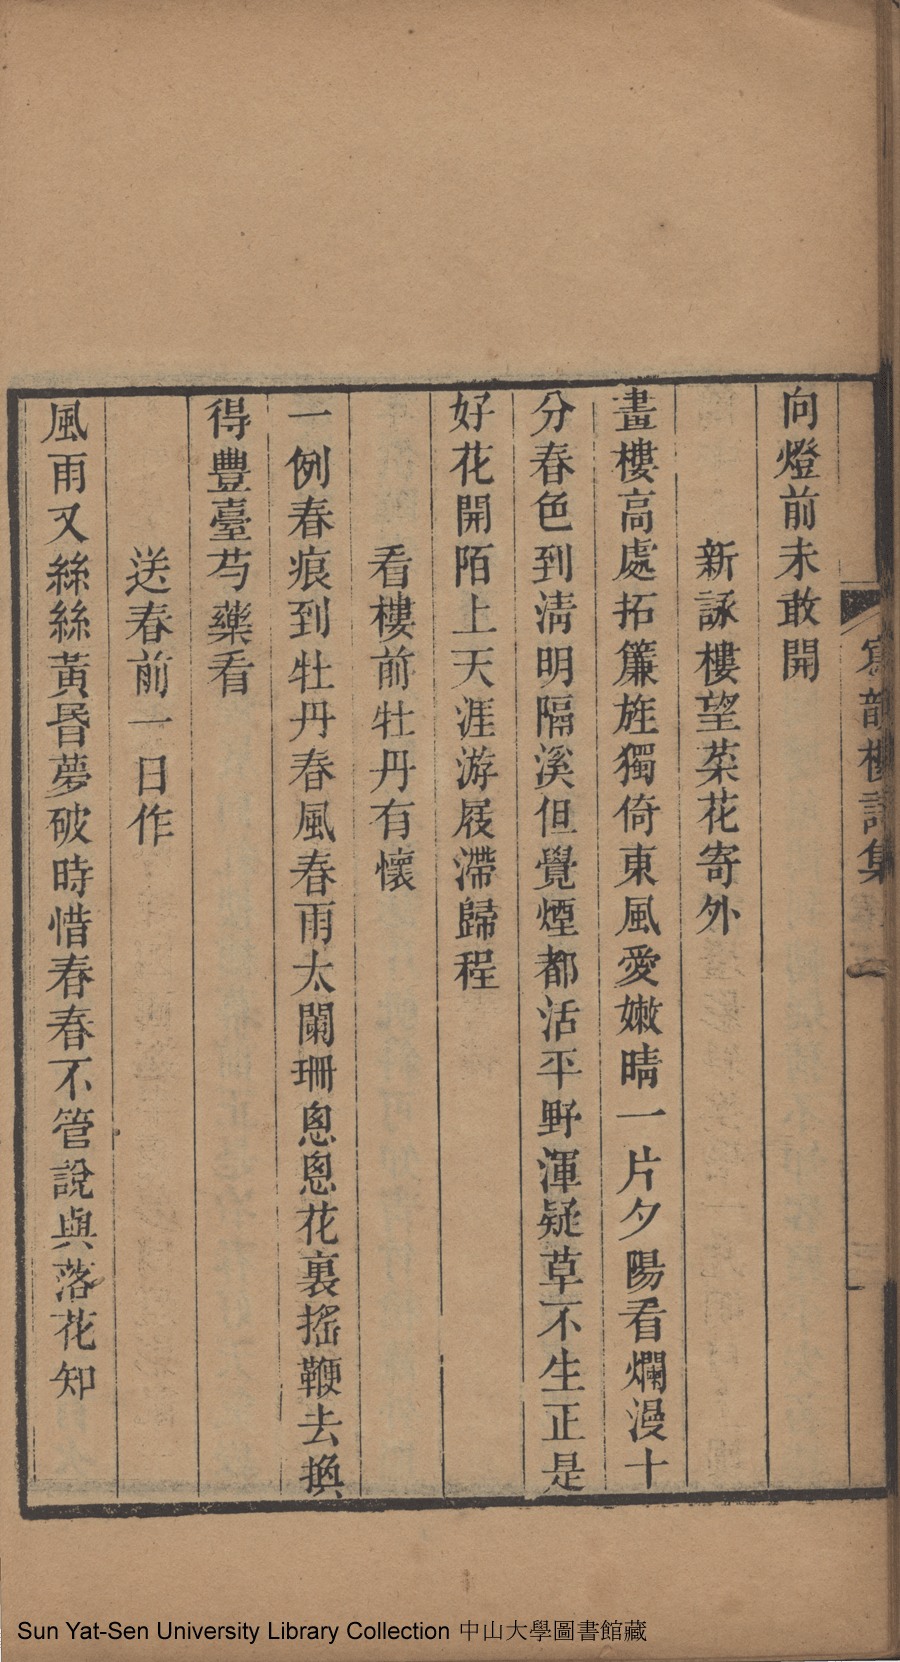 向燈前未敢開
新詠樓望菜花寄外
畫樓高處拓簾旌獨倚東風愛嫩晴一片夕陽看爛漫十
分春色到淸明隔溪但覺煙都活平野渾疑草不生正是
好花開陌上天涯游屐滯歸程
看樓前牡丹有懷
一例春痕到牡丹春風春雨太闌珊悤悤花裏搖鞭去換
得豐臺芍藥看
送春前一日作
風雨又絲絲黃昬夢破時惜春春不管說與落花知
Sun Yat-Sen University Library Collection 中山大學圖書館藏